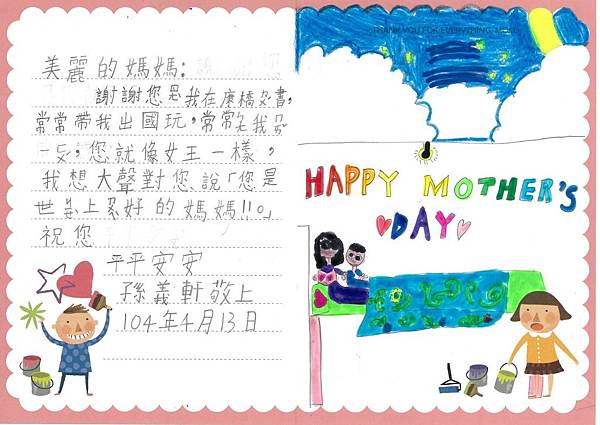 美麗的媽媽：
謝謝您是我在康橋念書，
常常帶我出國玩，常常
您就像女王一樣，
我想大聲對您說「您是
世界上最好的媽媽!!。」
祝您
平平安安
孫義軒敬上
104年4月13日
THANK YOU FOR EVERYTHING, MOM
HAPPY MOTHER'S
DAY